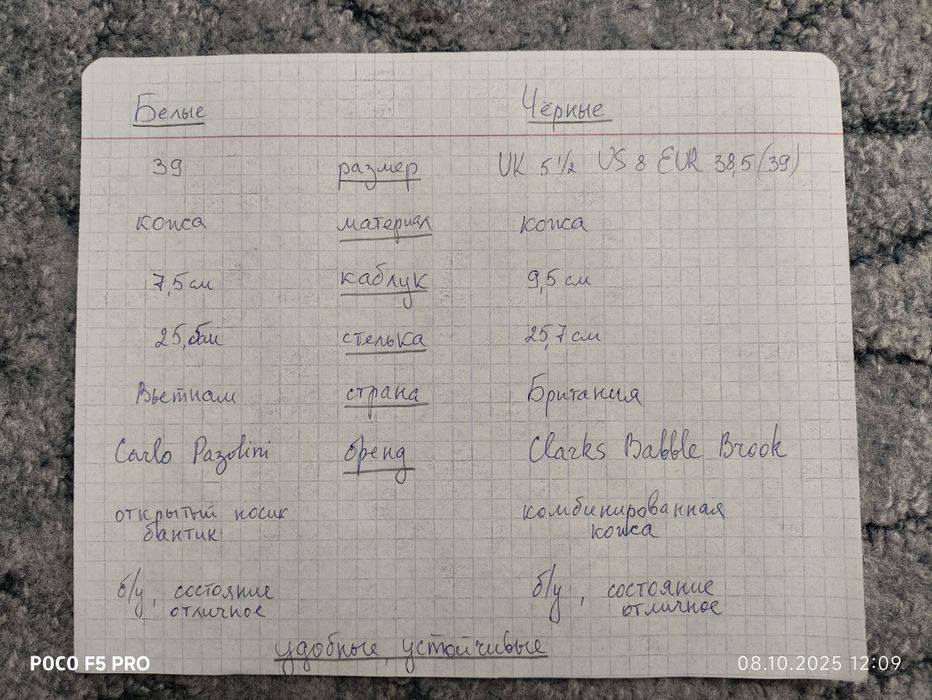 Белые Чёрные
39 размер UK 5 1/2 US 8 EUR 38,5 (39)
кожа материал кожа
7,5 см каблук 9,5 см
стелька 25,7 см
Вьетнам страна Британия
Carlo Pazolini бренд Clarks Babble Brook
открытый носик комбинированная
бантик кожа
б/у, состояние б/у, состояние
отличное отличное
удобные, устойчивые
POCO F5 PRO 08.10.2025 12:09